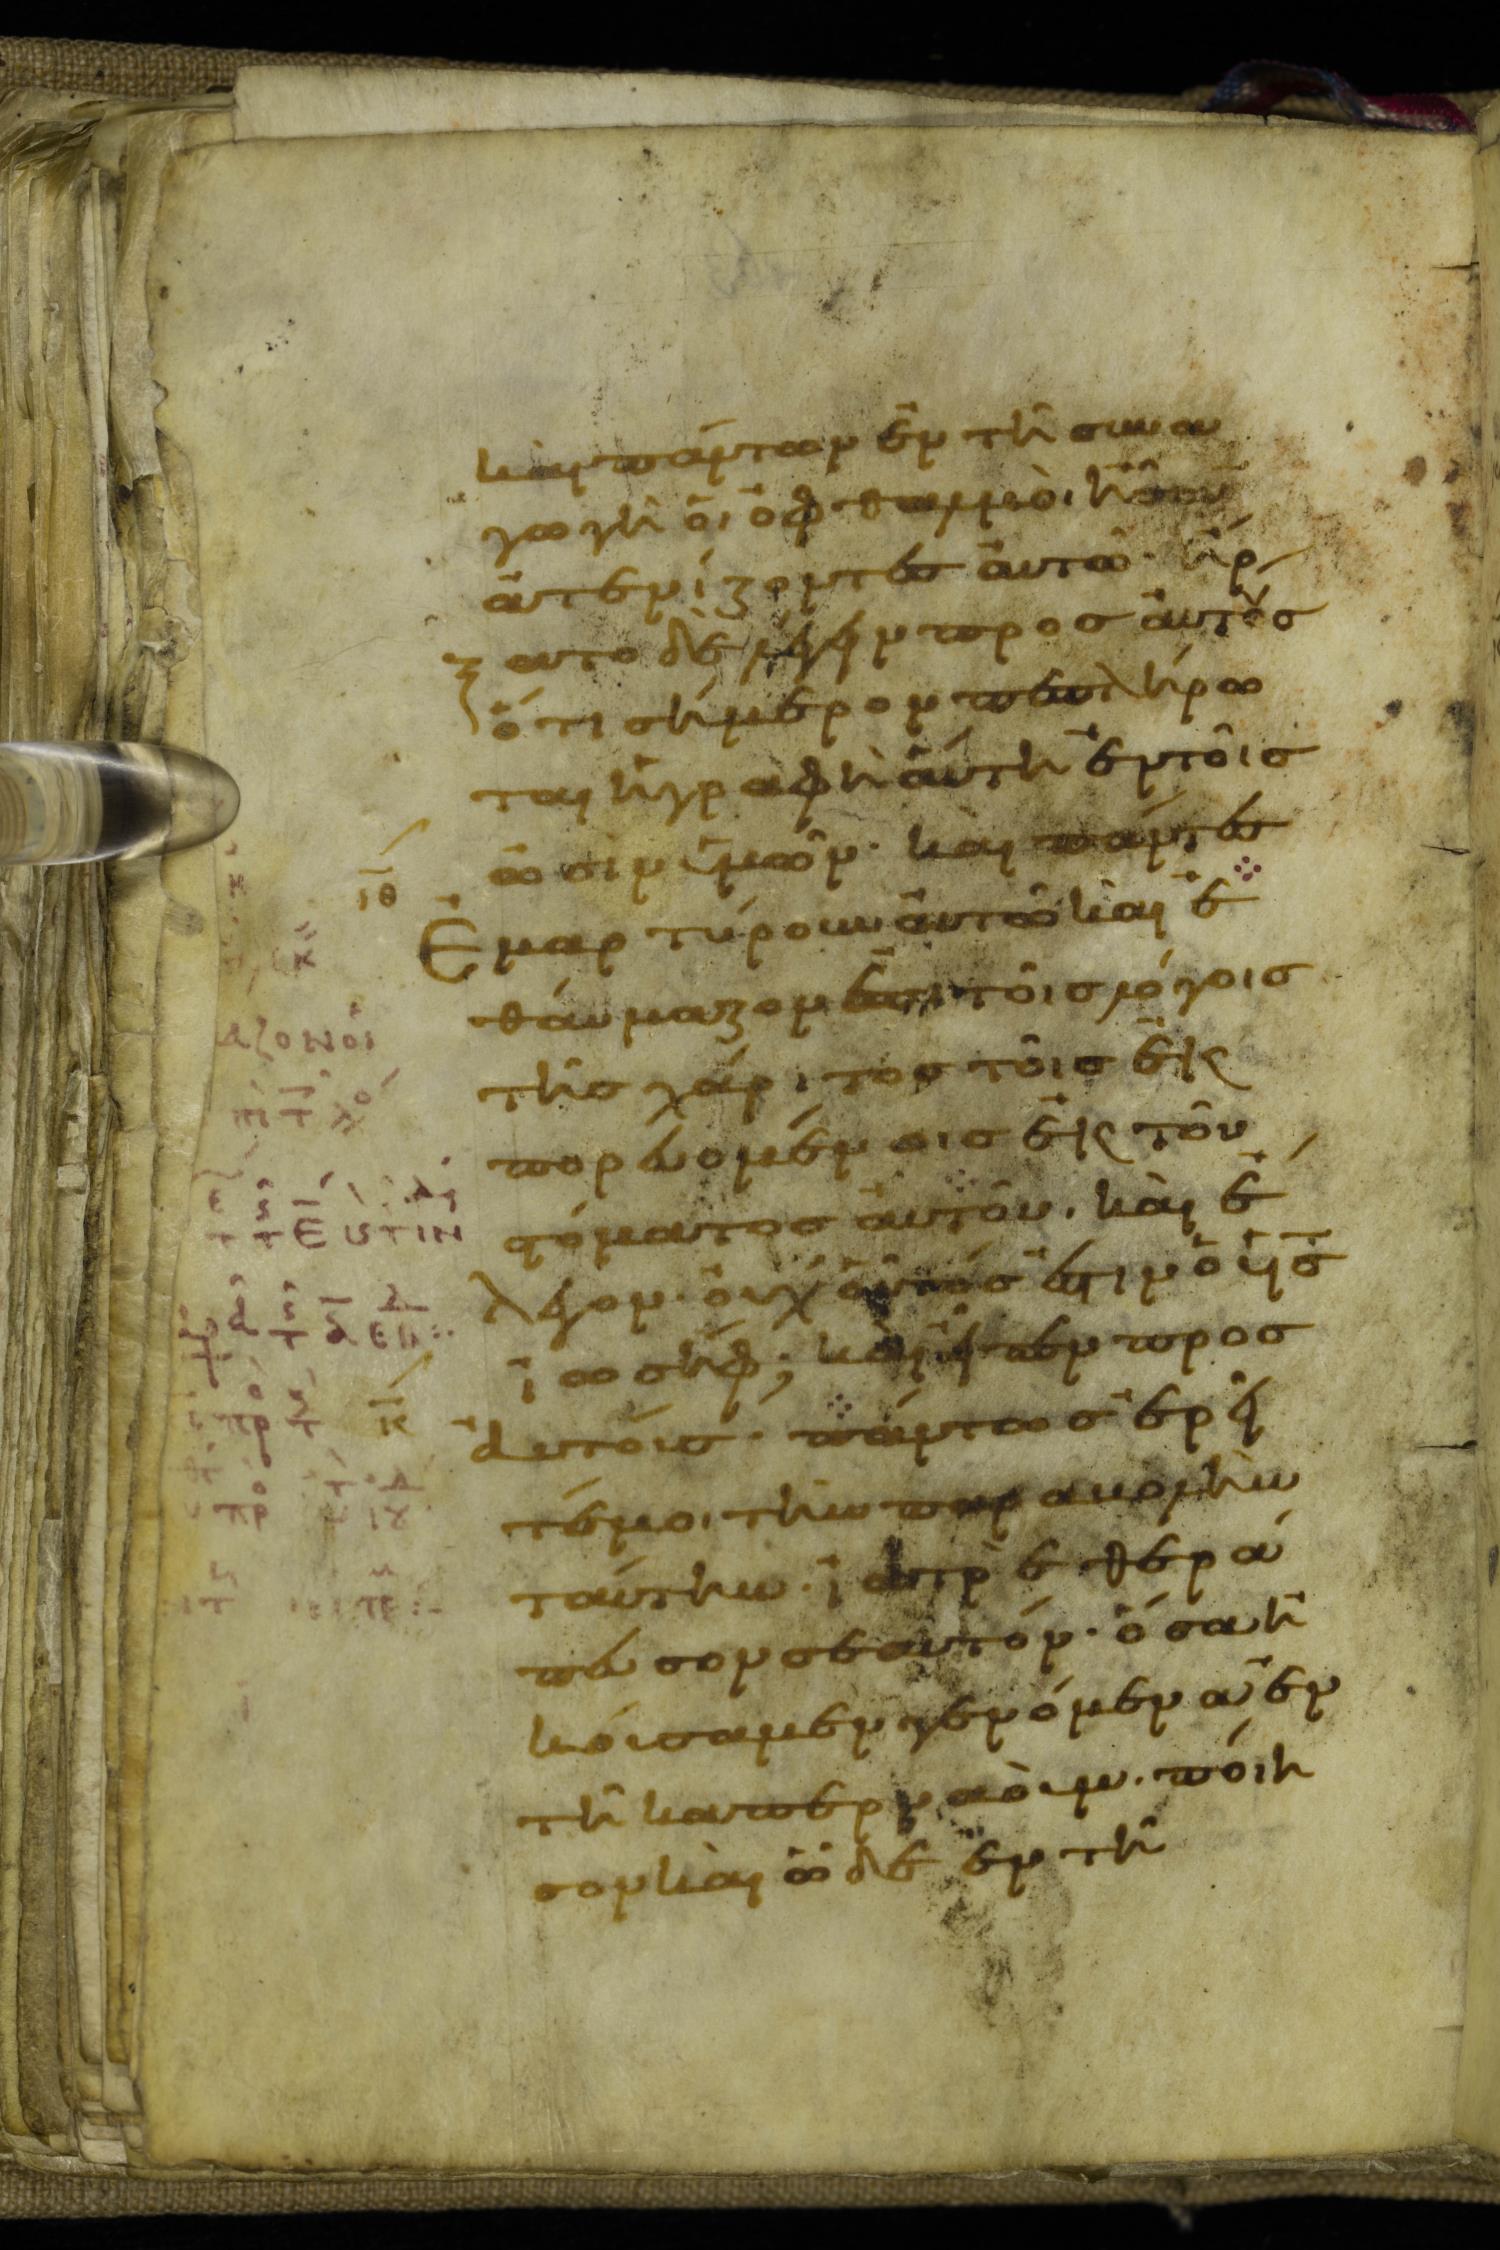 και πάντων ἐν τῆ συνα
γωγῆ ὁι ὀφθαλμὸι ἦσαν
ἀτενίζοντες ἀυτῶ· ἤρ
ξατο δὲ λέγειν προσ ἀυτοὺσ
ὅτι σήμερον πεπλήρω
ται ἡ γραφὴ ἁύτη ἐν τοῖσ
ὠσὶν ὑμῶν· και πάντεσ
ιθ
Ἐμαρτύρουν ἀυτῶ και ἐ
θάυμαζον ἐπι τοῖσ λόγοισ
τῆσ χάριτοσ τοῖσ ἐκ
πορευομένοισ ἐκ τοῦ
στόματοσ ἀυτοῦ. και ἔ
λεγον. ὀυχ ὁῦτόσ ἐστιν ὁ υἱὸσ
ἰωσήφ; και εἶπεν προσ
κ
Ἀυτόυσ· πάντωσ ἐρεῖ
τέ μοι τὴν παραβολὴν
ταύτην. ἰατρὲ θερά
πευσον σεαυτόν· ὅσα ἠ
κόυσαμεν γενόμενα ἐν
τῆ καπερναοὺμ. πόιη
σον και ὧδε ἐν τῆ